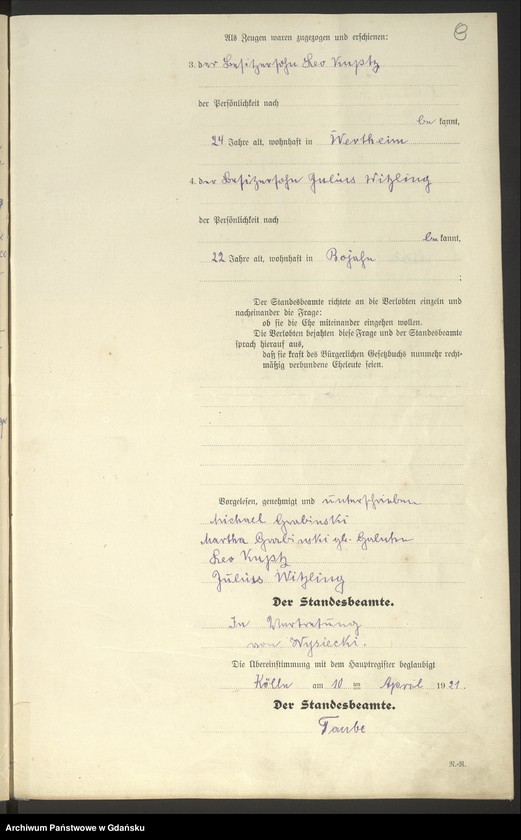 Als Zeugen waren zugezogen und erschienen:
3. der Besitzersohn Leo Kuptz
der Persönlichkeit nach
be kannt,
24 Jahre alt, wohnhaft in Wertheim
4. der Besitzersohn Julius Witzling
der Persönlichkeit nach
be kannt,
22 Jahre alt, wohnhaft in Bojahn
;
Der Standesbeamte richtete an die Verlobten einzeln und
nacheinander die Frage:
ob sie die Ehe miteinander eingehen wollen.
Die Verlobten bejahten diese Frage und der Standesbeamte
sprach hierauf aus,
daß sie kraft des Bürgerlichen Gesetzbuchs nunmehr recht-
mäßig verbundene Eheleute seien.
Vorgelesen, genehmigt und unterschrieben
Michael Grabinski
Martha Grabinski gb.
Leo Kuptz
Julius Witzling
Der Standesbeamte.
In Vertretung
von Wysiecki.
Die Übereinstimmung mit dem Hauptregister beglaubigt
Kölln am 10 ten April 1921.
Der Standesbeamte.
Taube
R.-R.
Archiwum Państwowe w Gdańsku